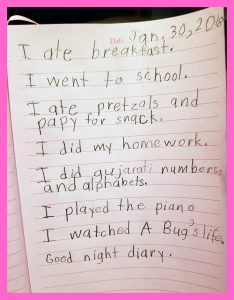 Date Jan, 30, 20
I ate breakfast.
I went to school.
I ate pretzals and
papy for snack.
I did my homework.
I did gujarati numbers
and alphabets.
I played the piano
I watched A Bug's life.
Good night diary.